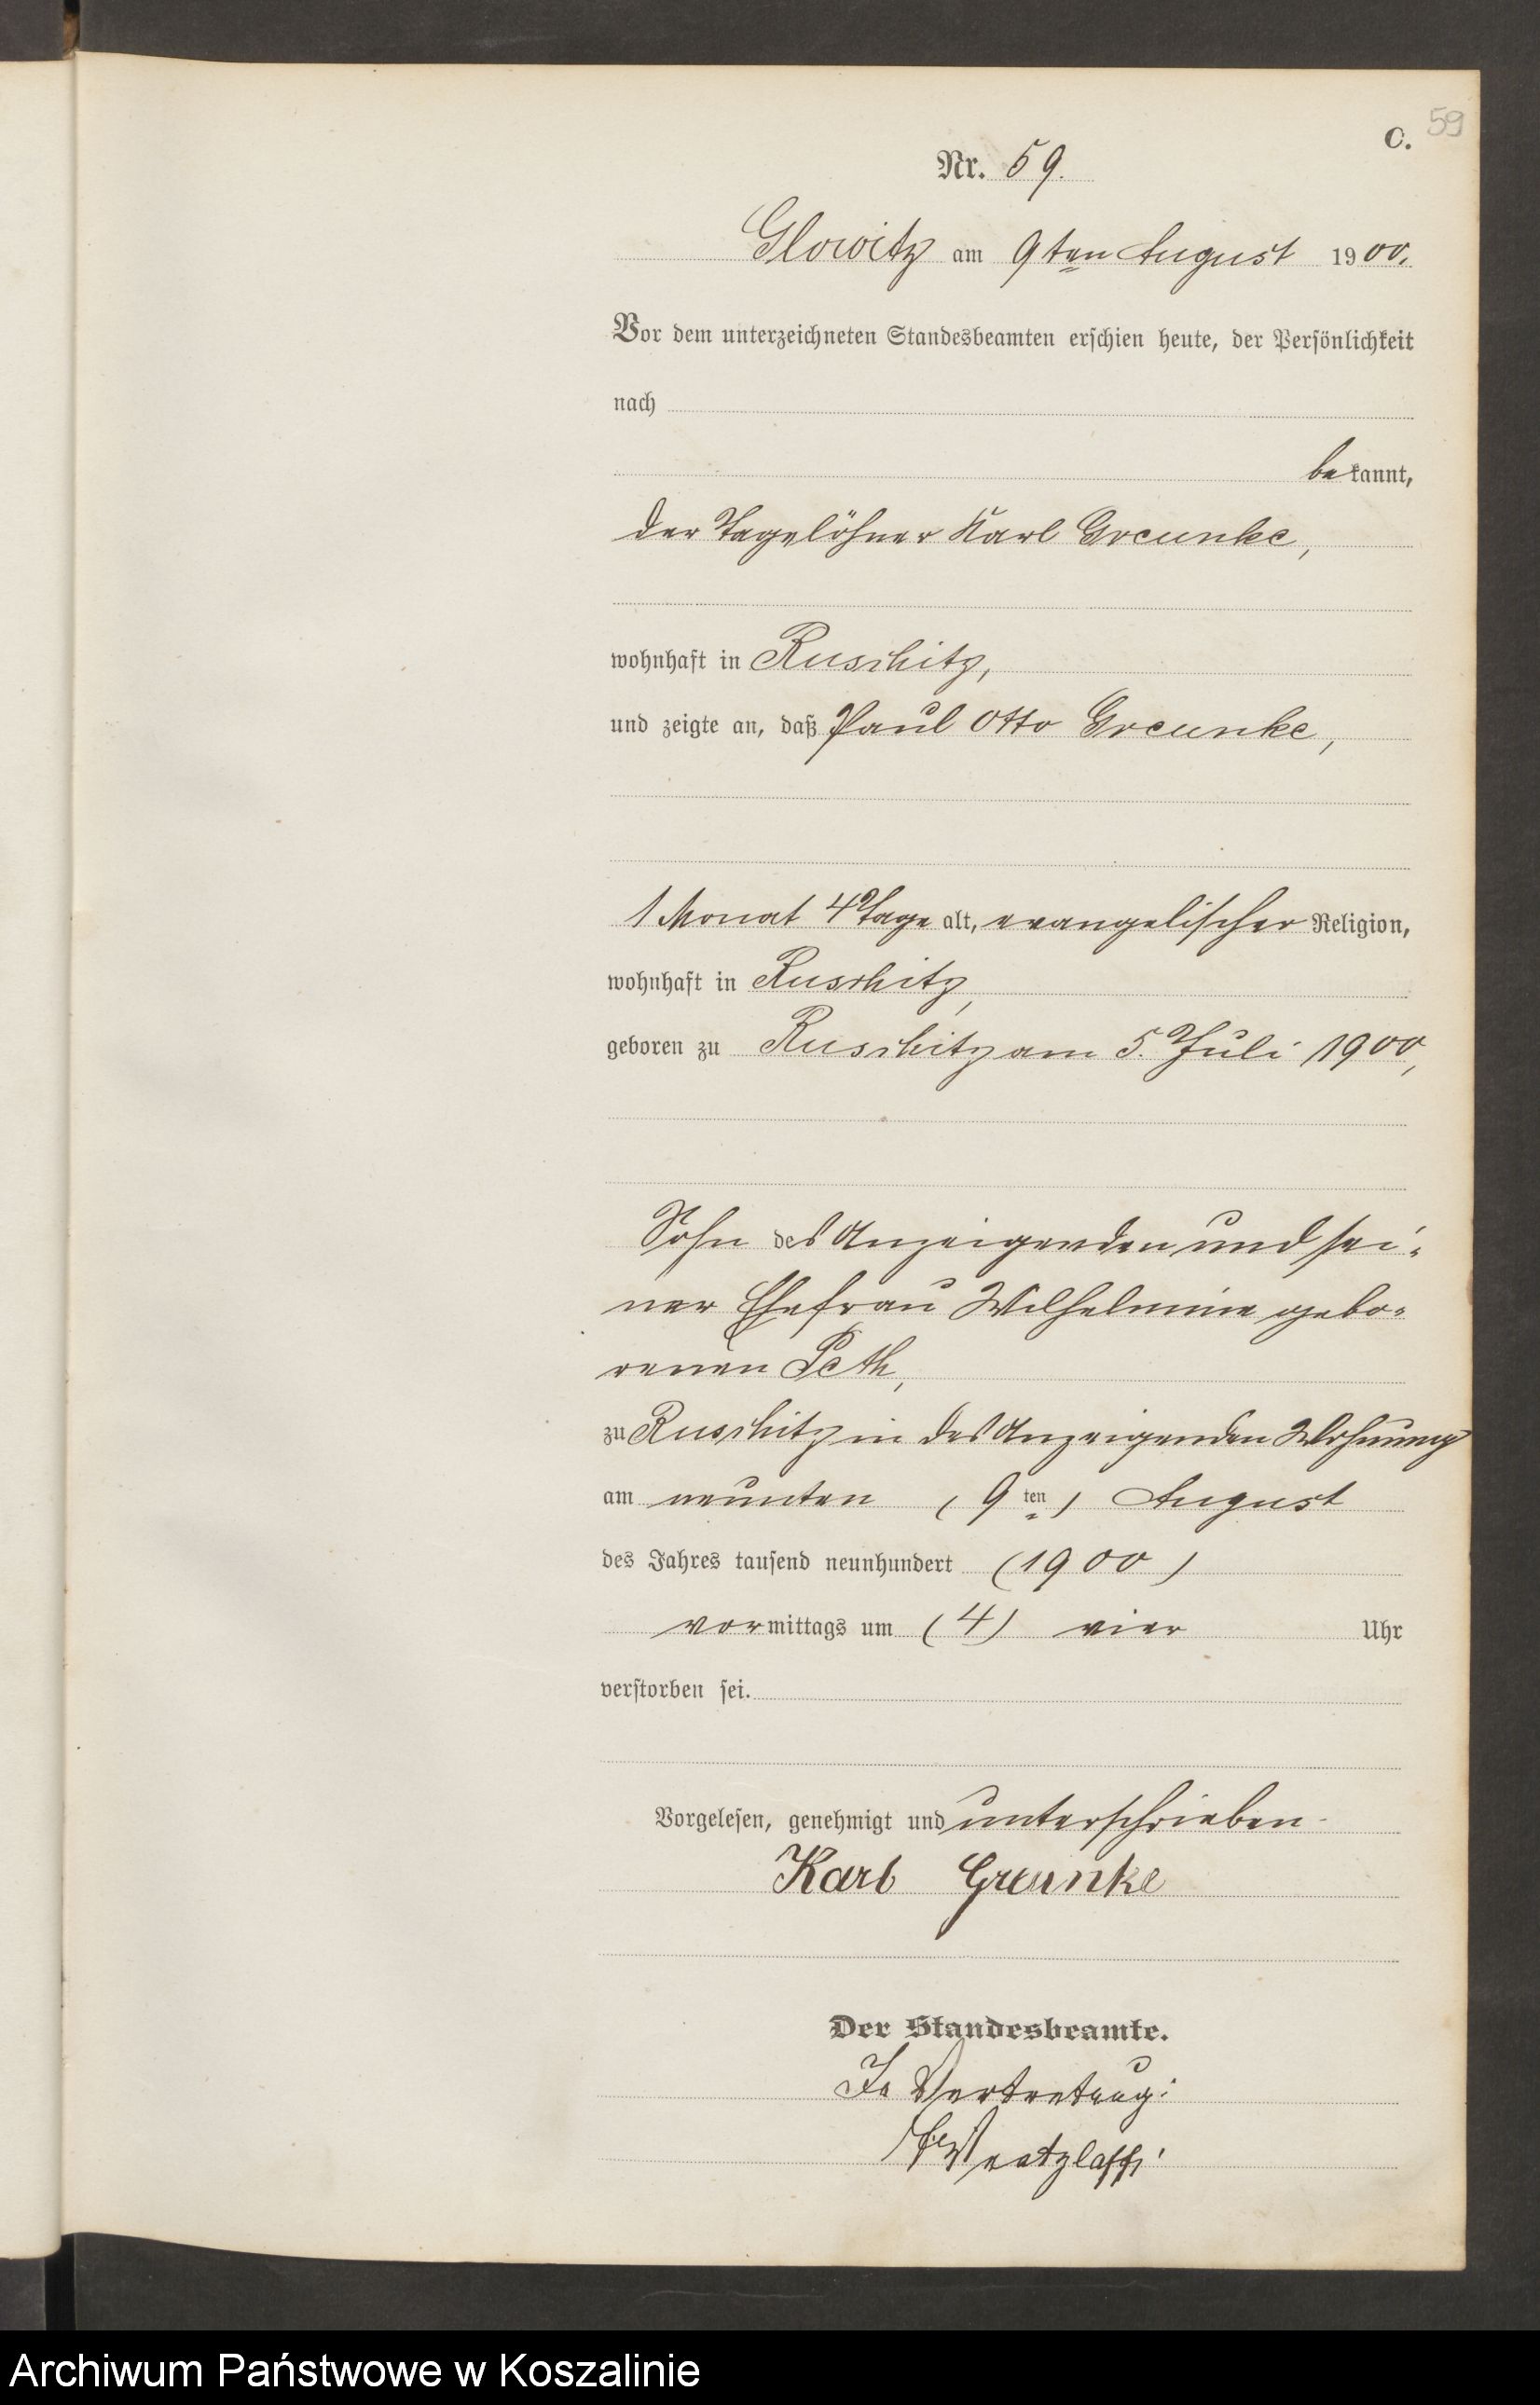 59
C.
Nr. 59.
Glowitz am 9ten August 1900.
Vor dem unterzeichneten Standesbeamten erschien heute, der Persönlichkeit
nach
bekannt,
der Tagelöhner Karl Greunke,
wohnhaft in Ruschitz,
und zeigte an, daß Paul Otto Greunke,
1 Monat 4 Tage alt, evangelischer Religion,
wohnhaft in Ruschitz,
geboren zu Ruschitz am 5. Juli 1900,
Sohn des Anzeigenden und sei-
ner Ehefrau Wilhelmine gebo-
renen Peth,
zu Ruschitz in des Anzeigenden Wohnung
am neunten (9ten) August
des Jahres tausend neunhundert (1900)
vormittags um (4) vier Uhr
verstorben sei.
Vorgelesen, genehmigt und unterschrieben
Karl Greunke
Der Standesbeamte.
In Vertretung:
Archiwum Państwowe w Koszalinie